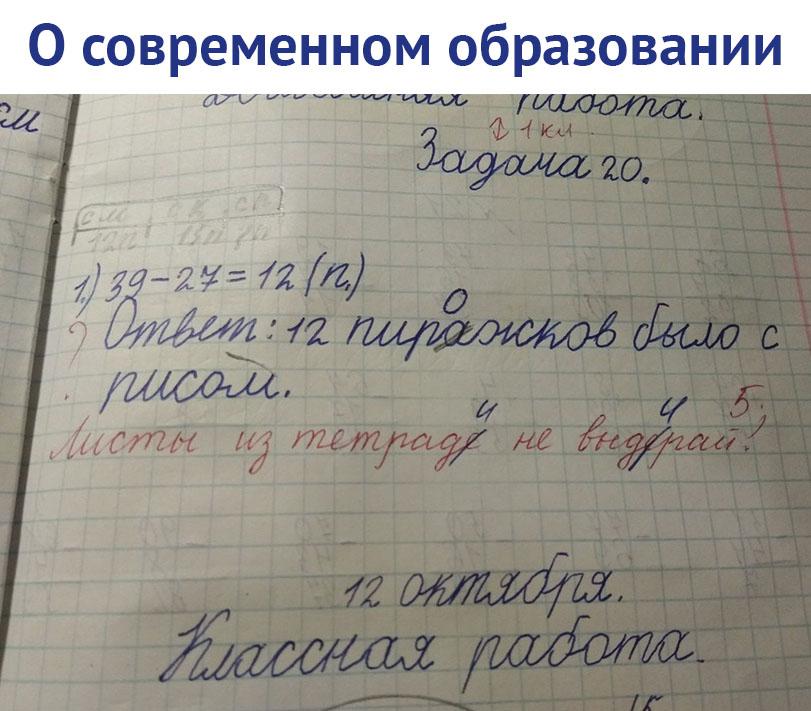 О современном образовании
см
работа.
↕ 1 кл.
Задача 20.
1.) 39-27=12 (п.)
? Ответ: 12 пиражков было с
о
рисом.
Листы из тетраде не выдерай!
и и 5;
12 октября.
Классная работа.
15